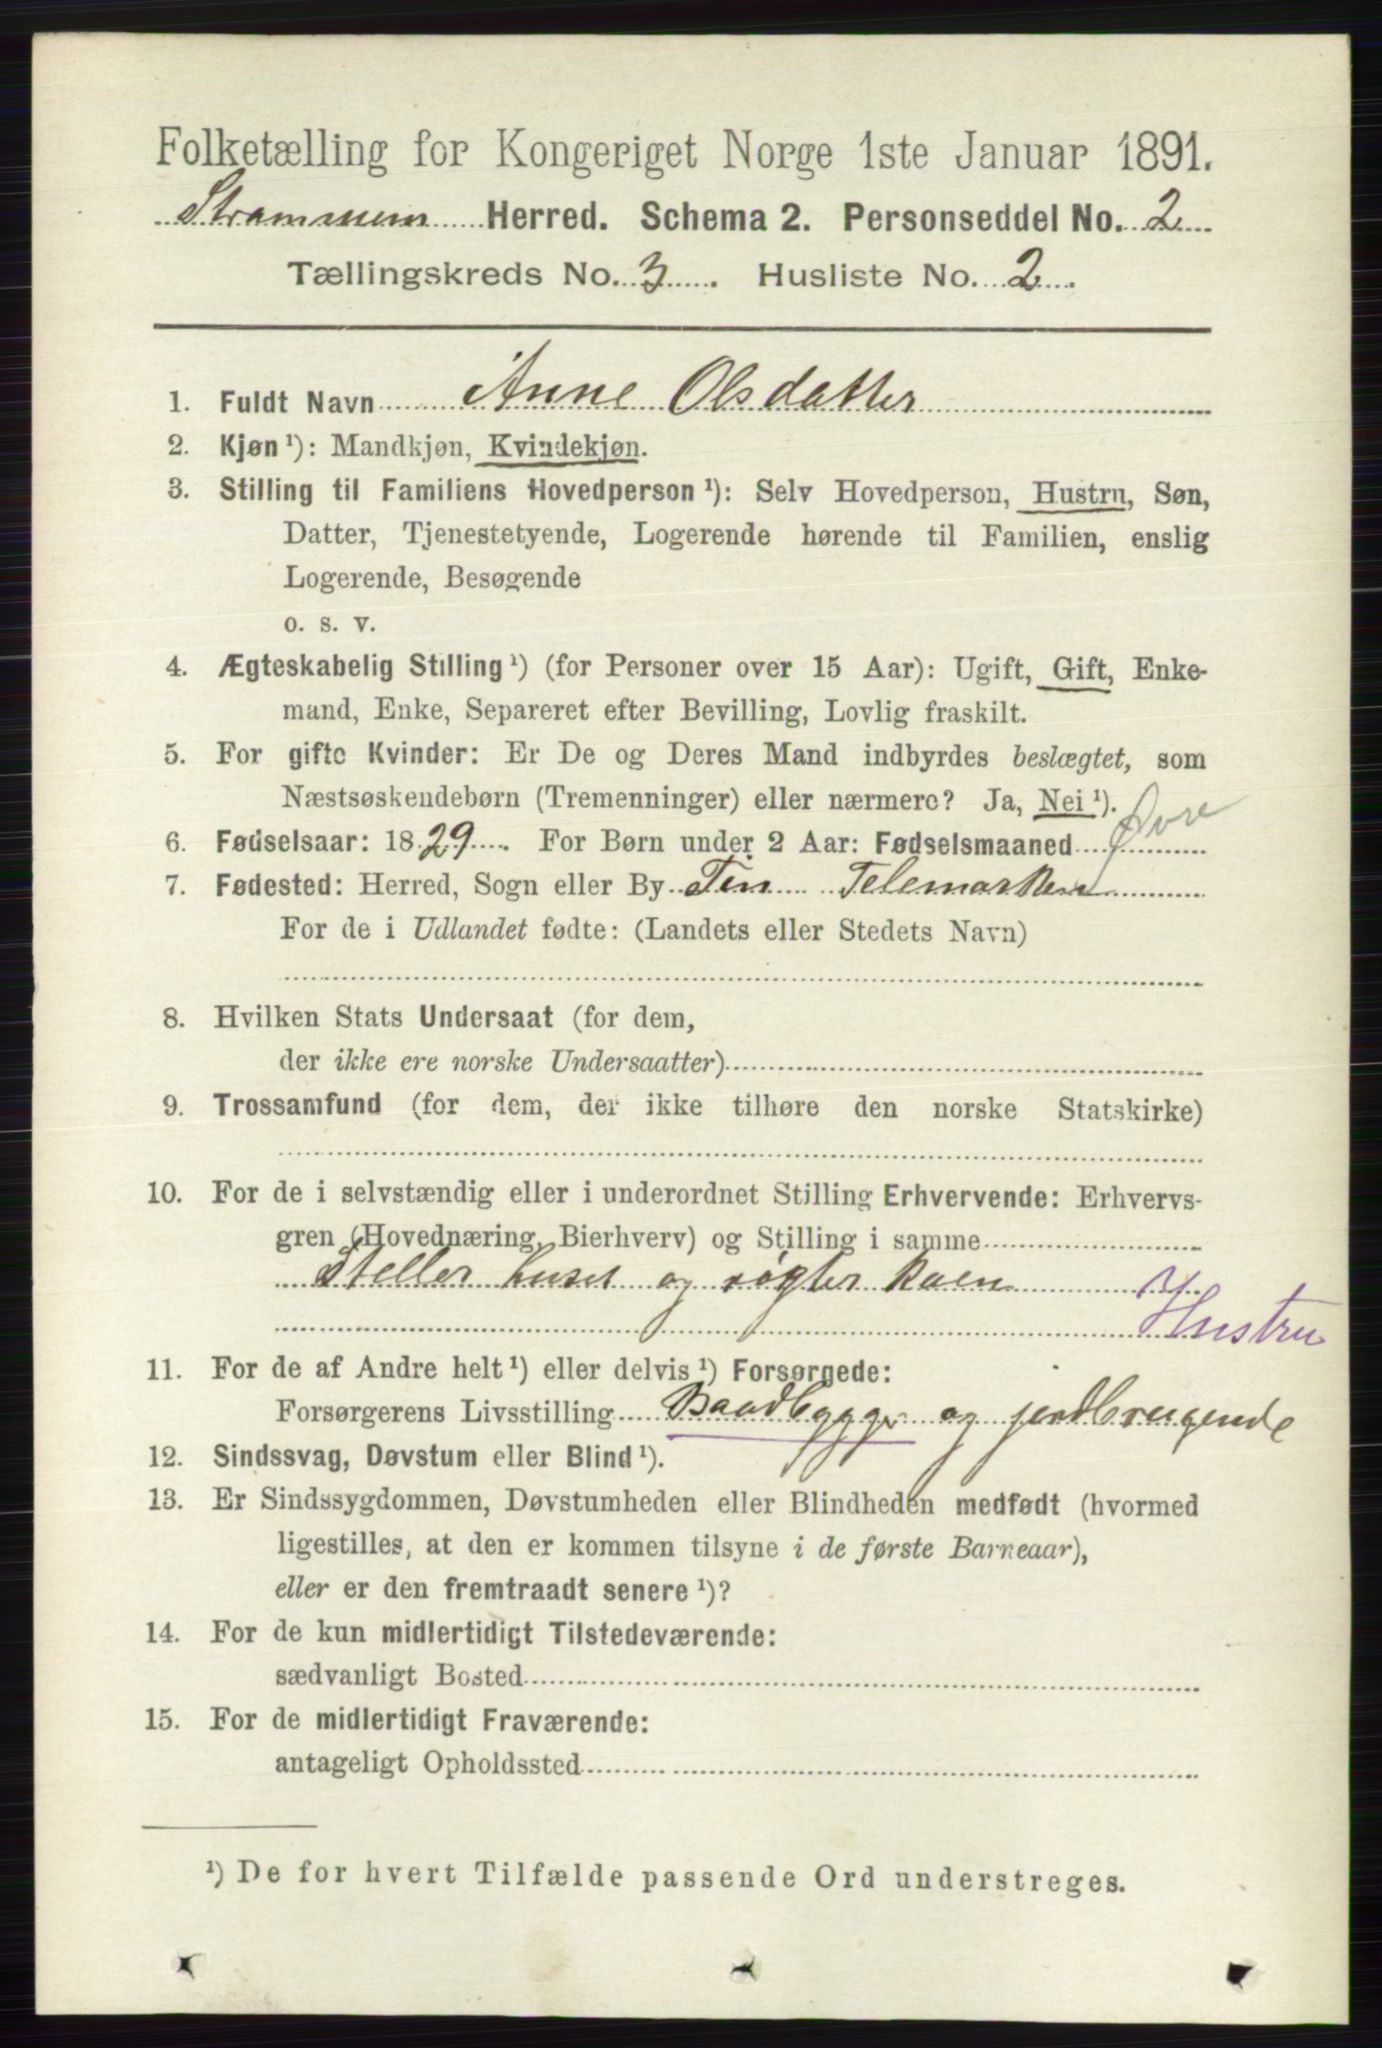 Folketælling for Kongeriget Norge 1ste Januar 1891.
Strømmen Herred. Schema 2. Personseddel No. 2
Tællingskreds No. 3 Husliste No. 2
1. Fuldt Navn Anne Olsdatter
2. Kjøn¹): Mandkjøn, Kvindekjøn.
3. Stilling til Familiens Hovedperson¹): Selv Hovedperson, Hustru, Søn,
Datter, Tjenestetyende, Logerende hørende til Familien, enslig
Logerende, Besøgende
o. s. v.
4. Ægteskabelig Stilling¹) (for Personer over 15 Aar): Ugift, Gift, Enke-
mand, Enke, Separeret efter Bevilling, Lovlig fraskilt.
5. For gifte Kvinder: Er De og Deres Mand indbyrdes beslægtet, som
Næstsøskendebørn (Tremenninger) eller nærmere? Ja, Nei¹).
Øvre
6. Fødselsaar: 1829. For Børn under 2 Aar: Fødselsmaaned
7. Fødested: Herred, Sogn eller By Tin Telemarken
For de i Udlandet fødte: (Landets eller Stedets Navn)
8. Hvilken Stats Undersaat (for dem,
der ikke ere norske Undersaatter)
9. Trossamfund (for dem, der ikke tilhøre den norske Statskirke)
10. For de i selvstændig eller i underordnet Stilling Erhvervende: Erhvervs-
gren (Hovednæring, Bierhverv) og Stilling i samme
Steller huset og røgter koen
Hustru
11. For de af Andre helt¹) eller delvis¹) Forsørgede:
Forsørgerens Livsstilling Baadbygger og jordbrugende
12. Sindssvag, Døvstum eller Blind¹).
13. Er Sindssygdommen, Døvstumheden eller Blindheden medfødt (hvormed
ligestilles, at den er kommen tilsyne i de første Barneaar),
eller er den fremtraadt senere¹)?
14. For de kun midlertidigt Tilstedeværende:
sædvanligt Bosted
15. For de midlertidigt Fraværende:
antageligt Opholdssted
¹) De for hvert Tilfælde passende Ord understreges.